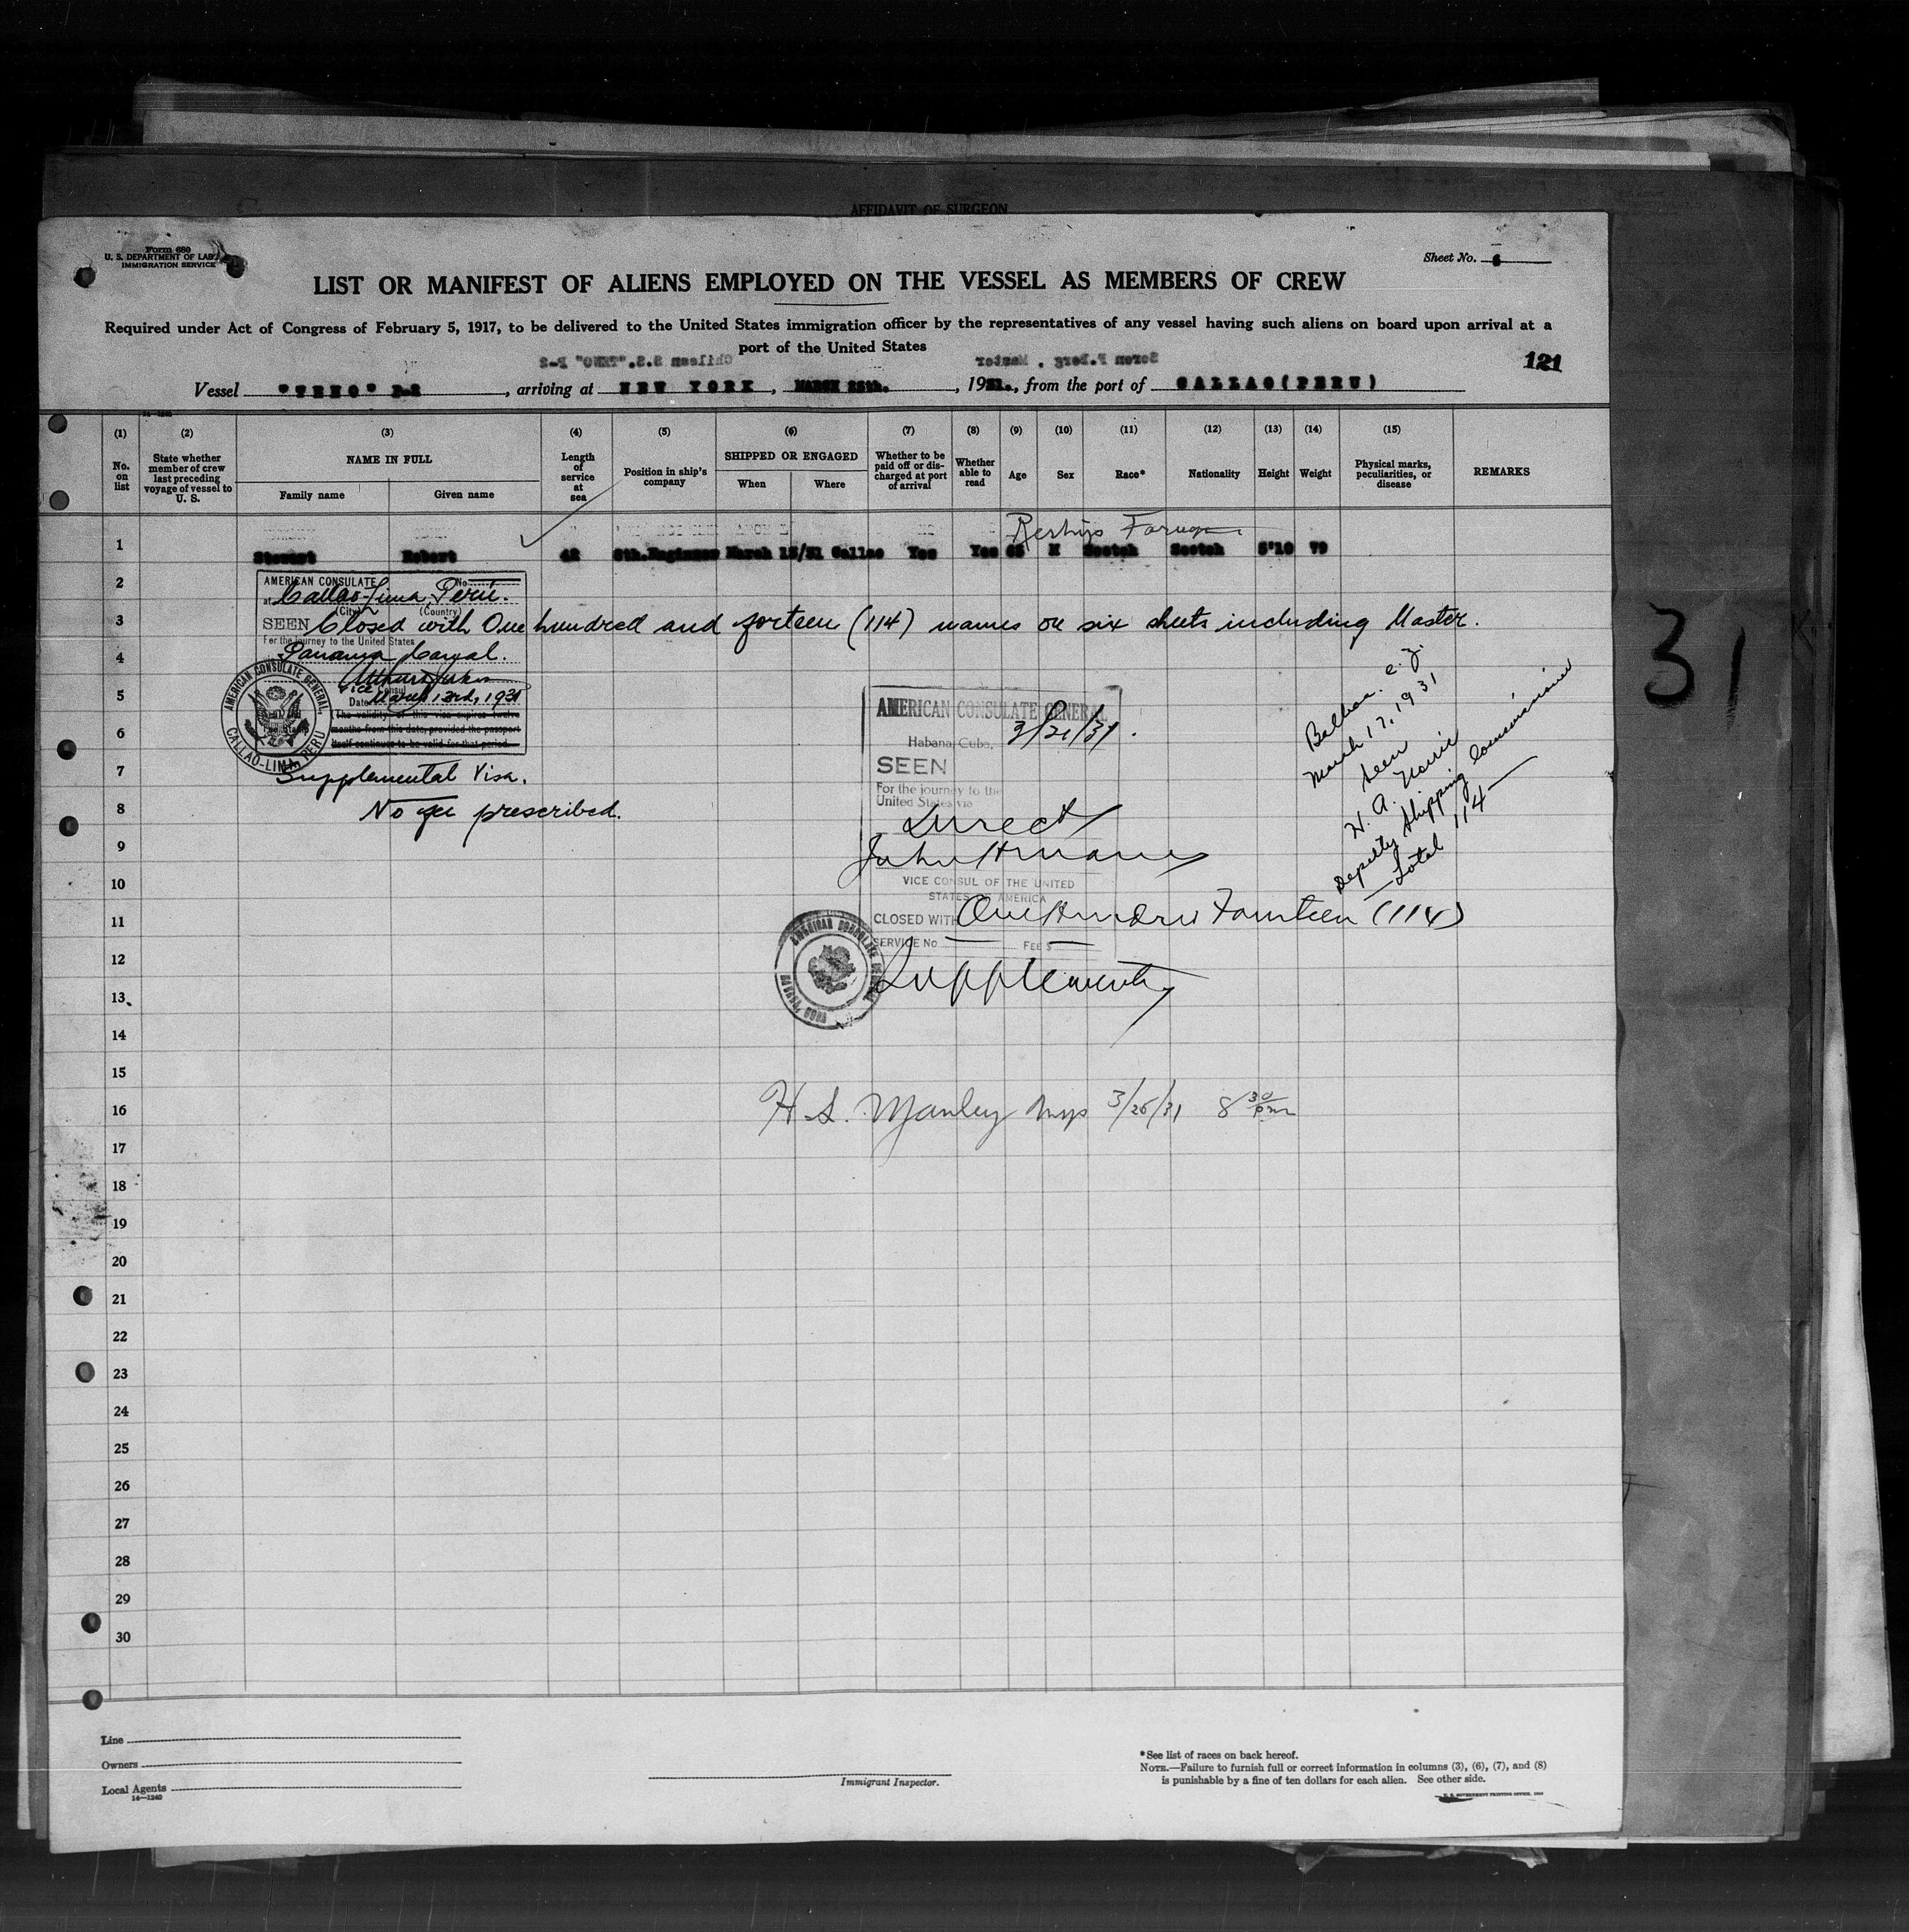 AFFIDAVIT OF SURGEON
Form 680
U. S. DEPARTMENT OF LABOR
IMMIGRATION SERVICE
Sheet No. 6
LIST OR MANIFEST OF ALIENS EMPLOYED ON THE VESSEL AS MEMBERS OF CREW
Required under Act of Congress of February 5, 1917, to be delivered to the United States immigration officer by the representatives of any vessel having such aliens on board upon arrival at a
port of the United States
Chilean S.S. "TENO" P-2 Soren P. Berg , Master
121
Vessel "TENO" P-2 , arriving at NEW YORK , MARCH 25th. , 1931., from the port of CALLAO(PERU)
(1) (2) (3) (4) (5) (6) (7) (8) (9) (10) (11) (12) (13) (14) (15)
No. on list
State whether member of crew last preceding voyage of vessel to U. S.
NAME IN FULL
Family name Given name
Length of service at sea
Position in ship's company
SHIPPED OR ENGAGED
When Where
Whether to be paid off or discharged at port of arrival
Whether able to read
Age Sex Race* Nationality Height Weight
Physical marks, peculiarities, or disease
REMARKS
Reships
1 Stewart Robert 42 8th.Engineer March 13/31 Callao Yes Yes 65 M Scotch Scotch 5'10 79
2
AMERICAN CONSULATE No.
at Callao-Lima, Perú.
(City) (Country)
3 SEEN Closed with One hundred and forteen (114) names on six sheets including Master.
For the journey to the United States
4 Panama Canal.
5
Vice Consul
Date March 13rd, 1931
The validity of this visa expires twelve
months from this date, provided the passport
itself continue to be valid for that period.
AMERICAN CONSULATE GENERAL, CALLAO-LIMA, PERU
6
7 Supplemental Visa.
8 No fee prescribed.
AMERICAN CONSULATE GENERAL
Habana, Cuba, 3/21/31.
SEEN
For the journey to the
United States via
Direct
VICE CONSUL OF THE UNITED
STATES OF AMERICA
CLOSED WITH One Hundred Fourteen (114)
SERVICE No. FEE $
AMERICAN CONSULATE GENERAL HABANA, CUBA
Balboa. C. Z.
March 17, 1931
Seen
H. A.
Deputy Shipping Commissioner
Total 114
9
10
11
12
13
14
15
16
H. S. Manley Insp 3/25/31 8 30 pm
17
18
19
20
21
22
23
24
25
26
27
28
29
30
31
Line
Owners
Local Agents
14—1240
Immigrant Inspector.
*See list of races on back hereof.
NOTE.—Failure to furnish full or correct information in columns (3), (6), (7), and (8)
is punishable by a fine of ten dollars for each alien. See other side.
U. S. GOVERNMENT PRINTING OFFICE